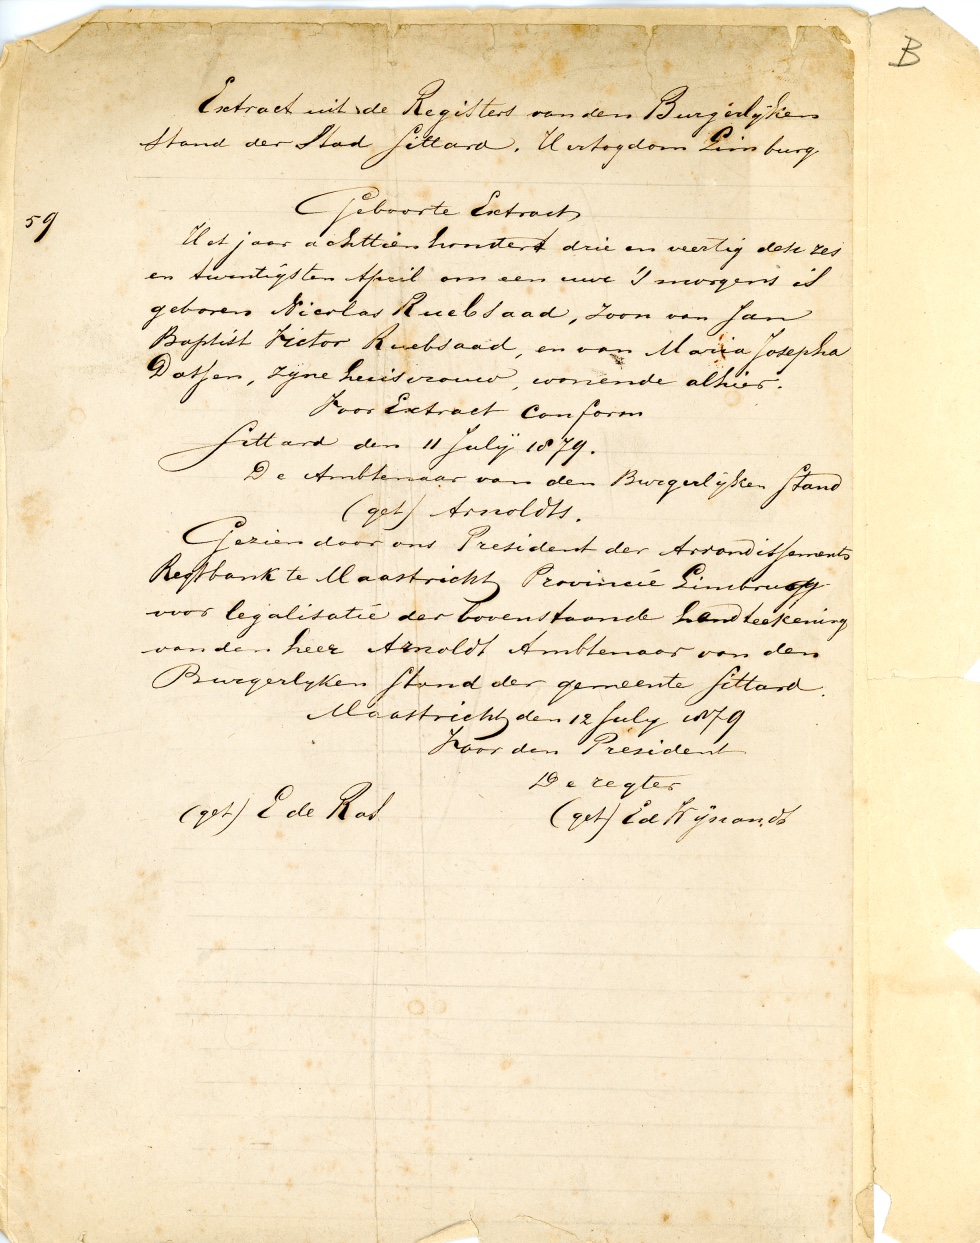 B
Extract uit de Registers van den Burgerlijken
Stand der Stad Sittard. Hertogdom Limburg
59
Geboorte Extract
Het jaar achttienhondert drie en veertig den zes
en twintigsten April om een uwe 's morgens is
geboren Nicolas Ruebsaad, zoon van Jan
Baptist Victor Ruebsaad, en van Maria Josepha
Datsen, zijne huisvrouw, wonende alhier.
Voor Extract conform
Sittard den 11 Julij 1879.
De Ambtenaar van den Burgerlijken Stand
(get) Arnoldts.
Gezien door ons President der Arrondissements
Regtbank te Maastricht Provincie
voor legalisatie der bovenstaande handteekening
van den heer Arnoldt Ambtenaar van den
Burgerlyken Stand der gemeente Sittard.
Maastricht den 12 July 1879
Voor den President
De regter
(get) E de Ras (get) Ed Wijnandts